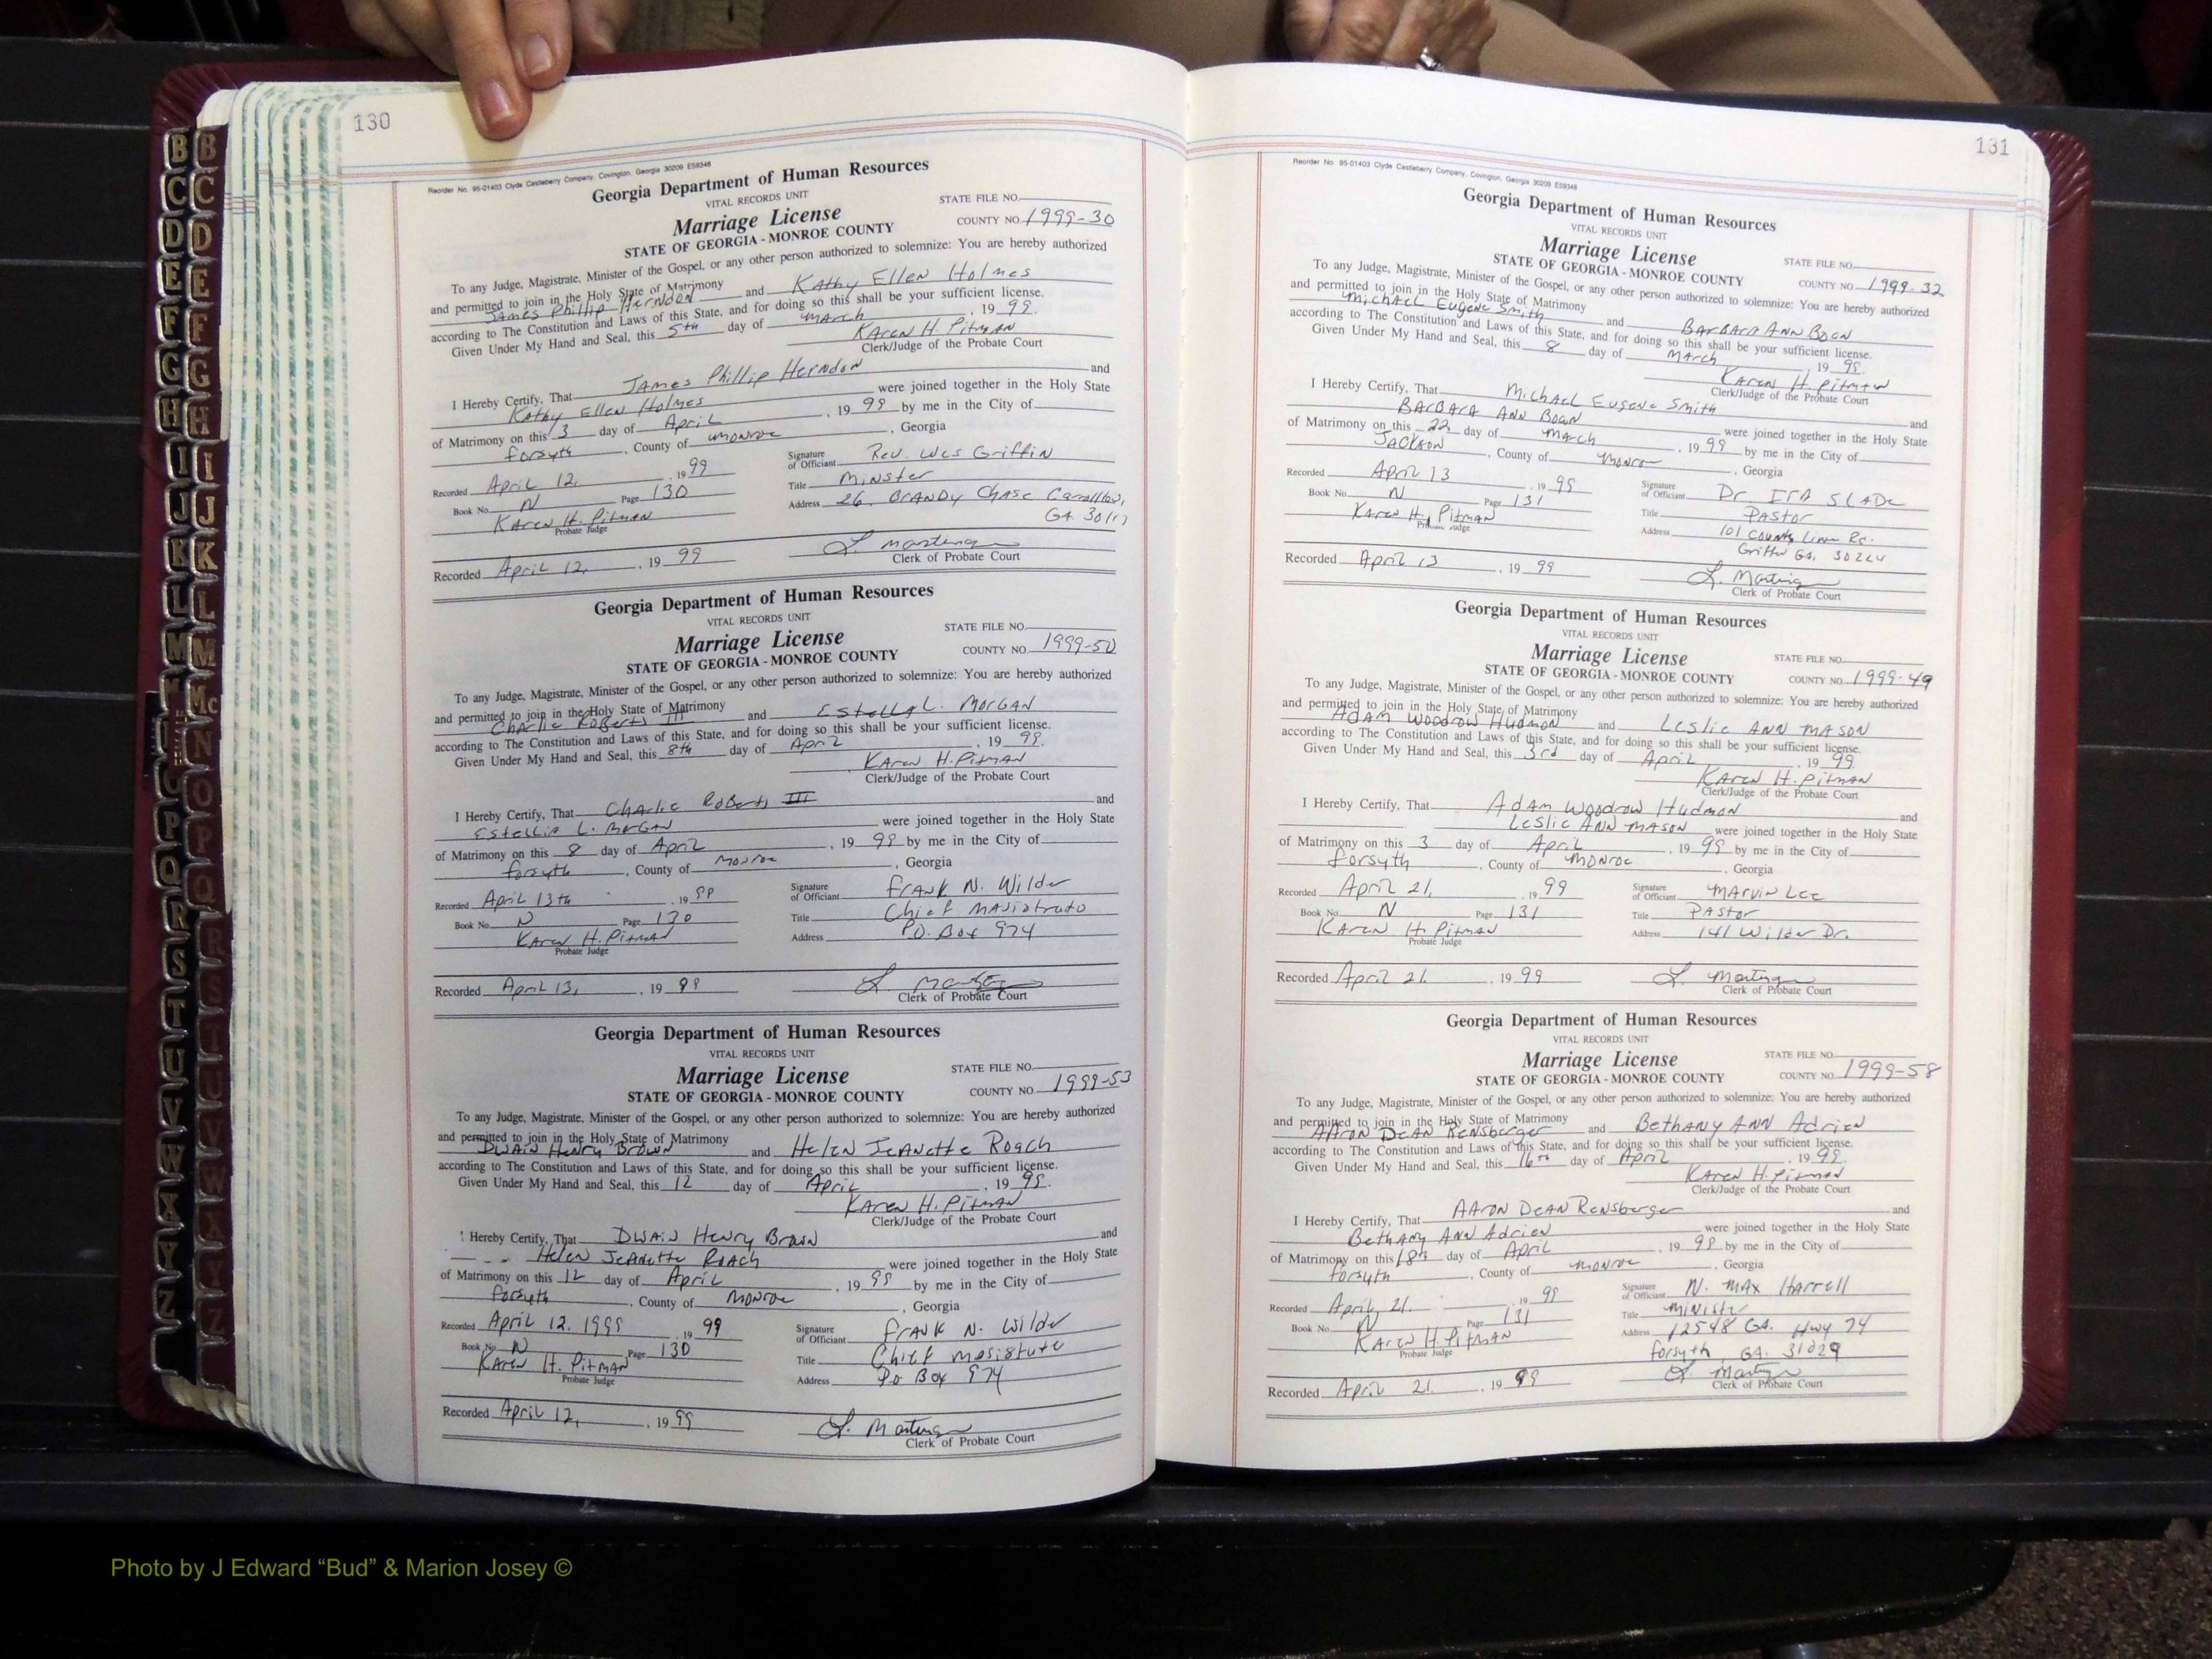 130
Reorder No. 95-01403 Clyde Castleberry Company, Covington, Georgia 30209 E59348
Georgia Department of Human Resources
VITAL RECORDS UNIT
STATE FILE NO.
Marriage License
COUNTY NO. 1999-30
STATE OF GEORGIA - MONROE COUNTY
To any Judge, Magistrate, Minister of the Gospel, or any other person authorized to solemnize: You are hereby authorized
and permitted to join in the Holy State of Matrimony
James Phillip Herndon and Kathy Ellen Holmes
according to The Constitution and Laws of this State, and for doing so this shall be your sufficient license.
Given Under My Hand and Seal, this 5th day of March, 19 99.
Karen H. Pitman
Clerk/Judge of the Probate Court
I Hereby Certify, That James Phillip Herndon and
Kathy Ellen Holmes were joined together in the Holy State
of Matrimony on this 3 day of April, 19 99 by me in the City of
Forsyth, County of Monroe, Georgia
Recorded April 12, 19 99
Signature of Officiant Rev. Wes Griffin
Book No. N Page 130
Title Minster
Karen H. Pitman
Probate Judge
Address 26 Brandy Chase Carrollton,
GA 30117
Recorded April 12, 19 99
L. Martin
Clerk of Probate Court
Georgia Department of Human Resources
VITAL RECORDS UNIT
STATE FILE NO.
Marriage License
COUNTY NO. 1999-50
STATE OF GEORGIA - MONROE COUNTY
To any Judge, Magistrate, Minister of the Gospel, or any other person authorized to solemnize: You are hereby authorized
and permitted to join in the Holy State of Matrimony
Charlie Roberts III and Estella L. Morgan
according to The Constitution and Laws of this State, and for doing so this shall be your sufficient license.
Given Under My Hand and Seal, this 8th day of April, 19 99.
Karen H. Pitman
Clerk/Judge of the Probate Court
I Hereby Certify, That Charlie Roberts III and
Estellia L. Morgan were joined together in the Holy State
of Matrimony on this 8 day of April, 19 99 by me in the City of
Forsyth, County of Monroe, Georgia
Recorded April 13th, 19 99
Signature of Officiant Frank N. Wilder
Book No. N Page 130
Title Chief Magistrate
Karen H. Pitman
Probate Judge
Address P.O. Box 974
Recorded April 13, 19 99
Clerk of Probate Court
Georgia Department of Human Resources
VITAL RECORDS UNIT
STATE FILE NO.
Marriage License
COUNTY NO. 1999-53
STATE OF GEORGIA - MONROE COUNTY
To any Judge, Magistrate, Minister of the Gospel, or any other person authorized to solemnize: You are hereby authorized
and permitted to join in the Holy State of Matrimony
Dwain Henry Brown and Helen Jeanette Roach
according to The Constitution and Laws of this State, and for doing so this shall be your sufficient license.
Given Under My Hand and Seal, this 12 day of April, 19 99.
Karen H. Pitman
Clerk/Judge of the Probate Court
I Hereby Certify, That Dwain Henry Brown and
Helen Jeanette Roach were joined together in the Holy State
of Matrimony on this 12 day of April, 19 99 by me in the City of
Forsyth, County of Monroe, Georgia
Recorded April 12, 1999, 19 99
Signature of Officiant Frank N. Wilder
Book No. N Page 130
Title Chief
Karen H. Pitman
Probate Judge
Address Po Box 974
Recorded April 12, 19 99
Clerk of Probate Court
131
Reorder No. 95-01403 Clyde Castleberry Company, Covington, Georgia 30209 E59348
Georgia Department of Human Resources
VITAL RECORDS UNIT
Marriage License
STATE FILE NO.
STATE OF GEORGIA - MONROE COUNTY
COUNTY NO. 1999-32
To any Judge, Magistrate, Minister of the Gospel, or any other person authorized to solemnize: You are hereby authorized
and permitted to join in the Holy State of Matrimony
Michael Eugene Smith and Barbara Ann
according to The Constitution and Laws of this State, and for doing so this shall be your sufficient license.
Given Under My Hand and Seal, this 8 day of March, 19 99.
Karen H. Pitman
Clerk/Judge of the Probate Court
I Hereby Certify, That Michael Eugene Smith and
Barbara Ann were joined together in the Holy State
of Matrimony on this 22 day of March, 19 99 by me in the City of
Jackson, County of Monroe, Georgia
Recorded April 13, 19 99
Signature of Officiant Dr. Ira Slade
Book No. N Page 131
Title Pastor
Karen H. Pitman
Probate Judge
Address 101 County Line Rd.
Griffin GA. 30224
Recorded April 13, 19 99
Clerk of Probate Court
Georgia Department of Human Resources
VITAL RECORDS UNIT
Marriage License
STATE FILE NO.
STATE OF GEORGIA - MONROE COUNTY
COUNTY NO. 1999-49
To any Judge, Magistrate, Minister of the Gospel, or any other person authorized to solemnize: You are hereby authorized
and permitted to join in the Holy State of Matrimony
Adam Woodrow Hudmon and Leslie Ann Mason
according to The Constitution and Laws of this State, and for doing so this shall be your sufficient license.
Given Under My Hand and Seal, this 3rd day of April, 19 99
Karen H. Pitman
Clerk/Judge of the Probate Court
I Hereby Certify, That Adam Woodrow Hudmon and
Leslie Ann Mason were joined together in the Holy State
of Matrimony on this 3 day of April, 19 99 by me in the City of
Forsyth, County of Monroe, Georgia
Recorded April 21, 19 99
Signature of Officiant Marvin Lee
Book No. N Page 131
Title Pastor
Karen H. Pitman
Probate Judge
Address 141 Wilder Dr.
Recorded April 21, 19 99
Clerk of Probate Court
Georgia Department of Human Resources
VITAL RECORDS UNIT
Marriage License
STATE FILE NO.
STATE OF GEORGIA - MONROE COUNTY
COUNTY NO. 1999-58
To any Judge, Magistrate, Minister of the Gospel, or any other person authorized to solemnize: You are hereby authorized
and permitted to join in the Holy State of Matrimony
Aaron Dean Rensberger and Bethany Ann Adrien
according to The Constitution and Laws of this State, and for doing so this shall be your sufficient license.
Given Under My Hand and Seal, this 16th day of April, 19 99.
Karen H. Pitman
Clerk/Judge of the Probate Court
I Hereby Certify, That Aaron Dean Rensberger and
Bethany Ann Adrien were joined together in the Holy State
of Matrimony on this 18th day of April, 19 99 by me in the City of
Forsyth, County of Monroe, Georgia
Recorded April 21, 19 99
Signature of Officiant N. Max Harrell
Book No. N Page 131
Title Minister
Karen H. Pitman
Probate Judge
Address 12548 GA. Hwy 74
Forsyth, GA. 31029
Recorded April 21, 19 99
Clerk of Probate Court
B B
C C
D D
E E
F F
G G
H H
I I
J J
K K
L L
M M
Mc
N
O
P P
Q Q
R R
S S
T T
U U
V V
W W
X X
Y Y
Z Z
Photo by J Edward “Bud” & Marion Josey ©